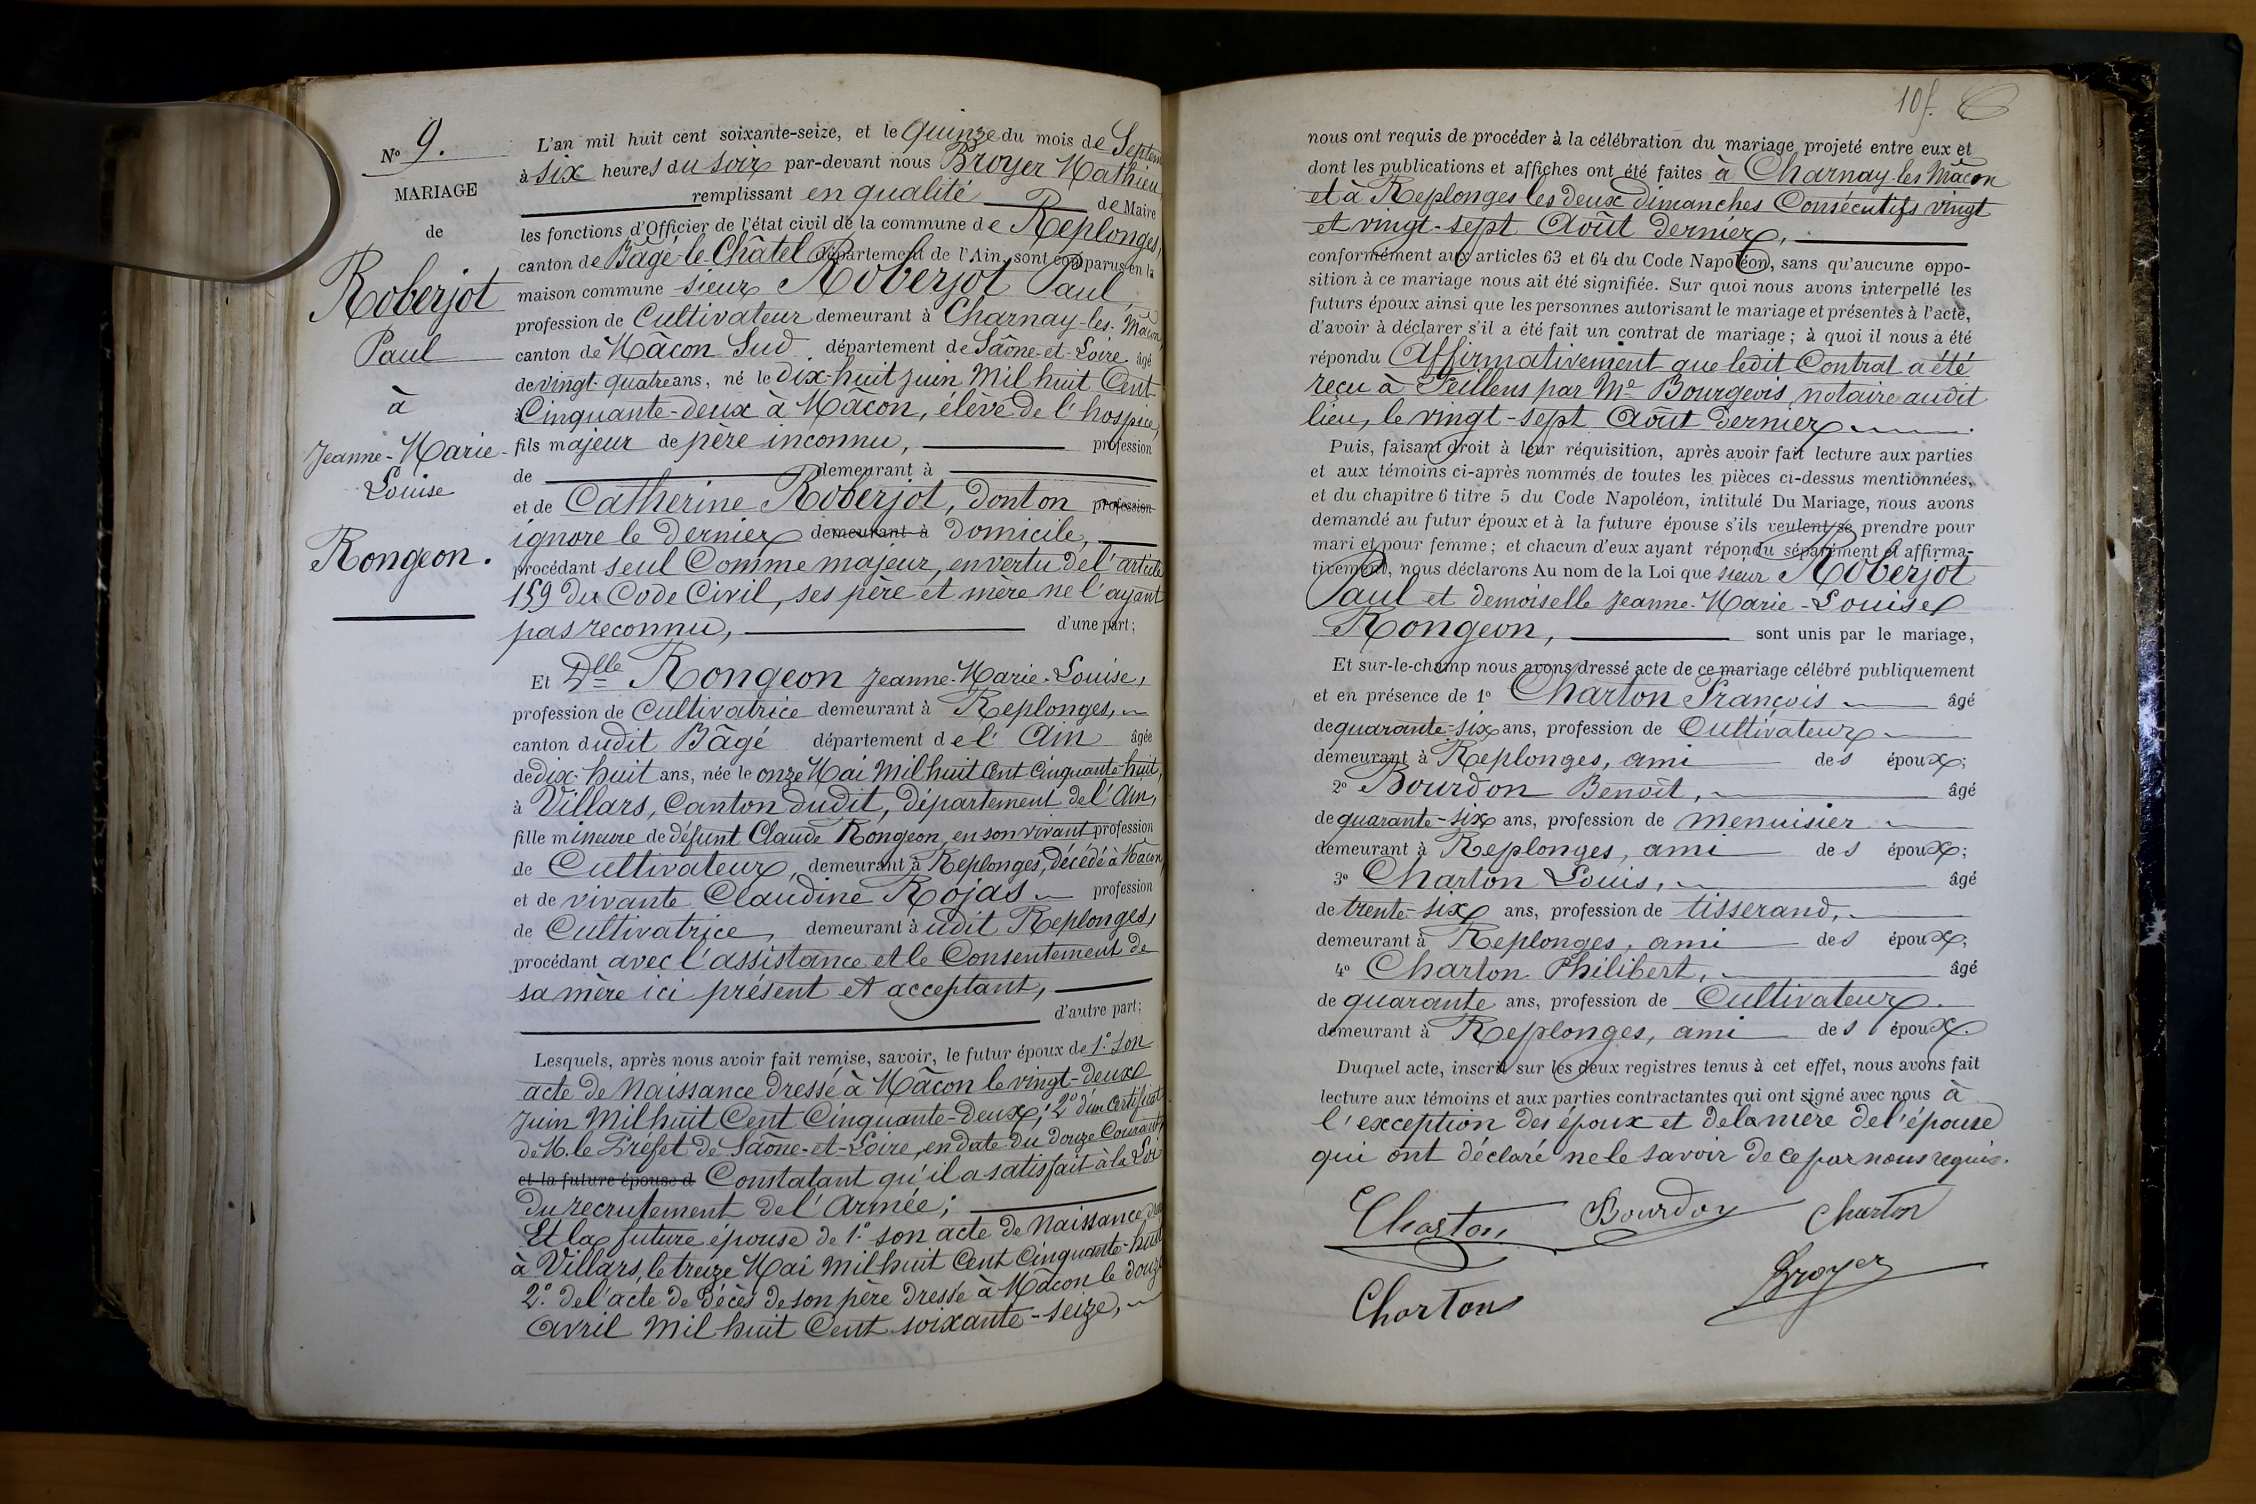 N° 9.
MARIAGE
de
Roberjot
Paul
à
Jeanne-Marie-
Louise
Rongeon.
L'an mil huit cent soixante-seize, et le Quinze du mois de Septem
à six heures du soir par-devant nous Broyer Mathieu
remplissant en qualité de Maire
les fonctions d'Officier de l'état civil de la commune de Replonges,
canton de Bâgé-le-Châtel département de l'Ain, sont comparus en la
maison commune sieur Roberjot Paul,
profession de Cultivateur demeurant à Charnay-les-Mâcon,
canton de Mâcon Sud département de Saône-et-Loire âgé
de vingt-quatre ans, né le dix-huit juin Mil huit Cent
Cinquante-deux à Mâcon, élève de l'hospice,
fils majeur de père inconnu, profession
de demeurant à
et de Catherine Roberjot, dont on profession
ignore le dernier demeurant à domicile,
procédant seul Comme majeur, en vertu de l'article
159 du Code Civil, ses père et mère ne l'ayant
pas reconnu, d'une part;
Et Dlle Rongeon Jeanne-Marie-Louise,
profession de Cultivatrice demeurant à Replonges,
canton dudit Bâgé département de l'Ain âgée
de dix-huit ans, née le onze Mai Mil huit Cent Cinquante-huit,
à Villars, Canton dudit, département de l'Ain,
fille mineure de défunt Claude Rongeon, en son vivant profession
de Cultivateur, demeurant à Replonges, décédé à Mâcon,
et de vivante Claudine Rojas profession
de Cultivatrice, demeurant à udit Replonges,
procédant avec l'assistance et le Consentement de
sa mère ici présent et acceptant,
d'autre part;
Lesquels, après nous avoir fait remise, savoir, le futur époux de 1° son
acte de Naissance dressé à Mâcon le vingt-deux
Juin Mil huit Cent Cinquante-deux; 2° d'un Certificat
de M. le Préfet de Saône-et-Loire, en date du douze Courant,
et la future épouse d Constatant qu'il a satisfait à la Loi
du recrutement de l'Armée;
Et la future épouse de 1° son acte de Naissance
à Villars, le treize Mai Mil huit Cent Cinquante-huit
2° de l'acte de Décès de son père dressé à Mâcon le douze
Avril Mil huit Cent soixante-seize,
nous ont requis de procéder à la célébration du mariage projeté entre eux et
dont les publications et affiches ont été faites à Charnay-les-Mâcon
et à Replonges les deux dimanches Consécutifs vingt
et vingt-sept Août dernier,
conformément aux articles 63 et 64 du Code Napoléon, sans qu'aucune oppo-
sition à ce mariage nous ait été signifiée. Sur quoi nous avons interpellé les
futurs époux ainsi que les personnes autorisant le mariage et présentes à l'acte,
d'avoir à déclarer s'il a été fait un contrat de mariage; à quoi il nous a été
répondu Affirmativement que ledit Contrat a été
reçu à Feillens par Me Bourgeois notaire audit
lieu, le vingt-sept Août dernier.
Puis, faisant droit à leur réquisition, après avoir fait lecture aux parties
et aux témoins ci-après nommés de toutes les pièces ci-dessus mentionnées,
et du chapitre 6 titre 5 du Code Napoléon, intitulé Du Mariage, nous avons
demandé au futur époux et à la future épouse s'ils veulent se prendre pour
mari et pour femme; et chacun d'eux ayant répondu séparément et affirma-
tivement, nous déclarons Au nom de la Loi que sieur Roberjot
Paul et demoiselle Jeanne-Marie-Louise
Rongeon, sont unis par le mariage,
Et sur-le-champ nous avons dressé acte de ce mariage célébré publiquement
et en présence de 1° Charton François âgé
de quarante-six ans, profession de Cultivateur
demeurant à Replonges, ami des époux;
2° Bourdon Benoît, âgé
de quarante-six ans, profession de menuisier
demeurant à Replonges, ami des époux;
3° Charton Louis, âgé
de trente-six ans, profession de tisserand,
demeurant à Replonges, ami des époux;
4° Charton Philibert, âgé
de quarante ans, profession de Cultivateur.
demeurant à Replonges, ami des époux.
Duquel acte, inscrit sur les deux registres tenus à cet effet, nous avons fait
lecture aux témoins et aux parties contractantes qui ont signé avec nous à
l'exception des époux et de la mère de l'épouse
qui ont déclaré ne le savoir de ce par nous requis.
Charton Bourdon Charton
Broyer
Charton